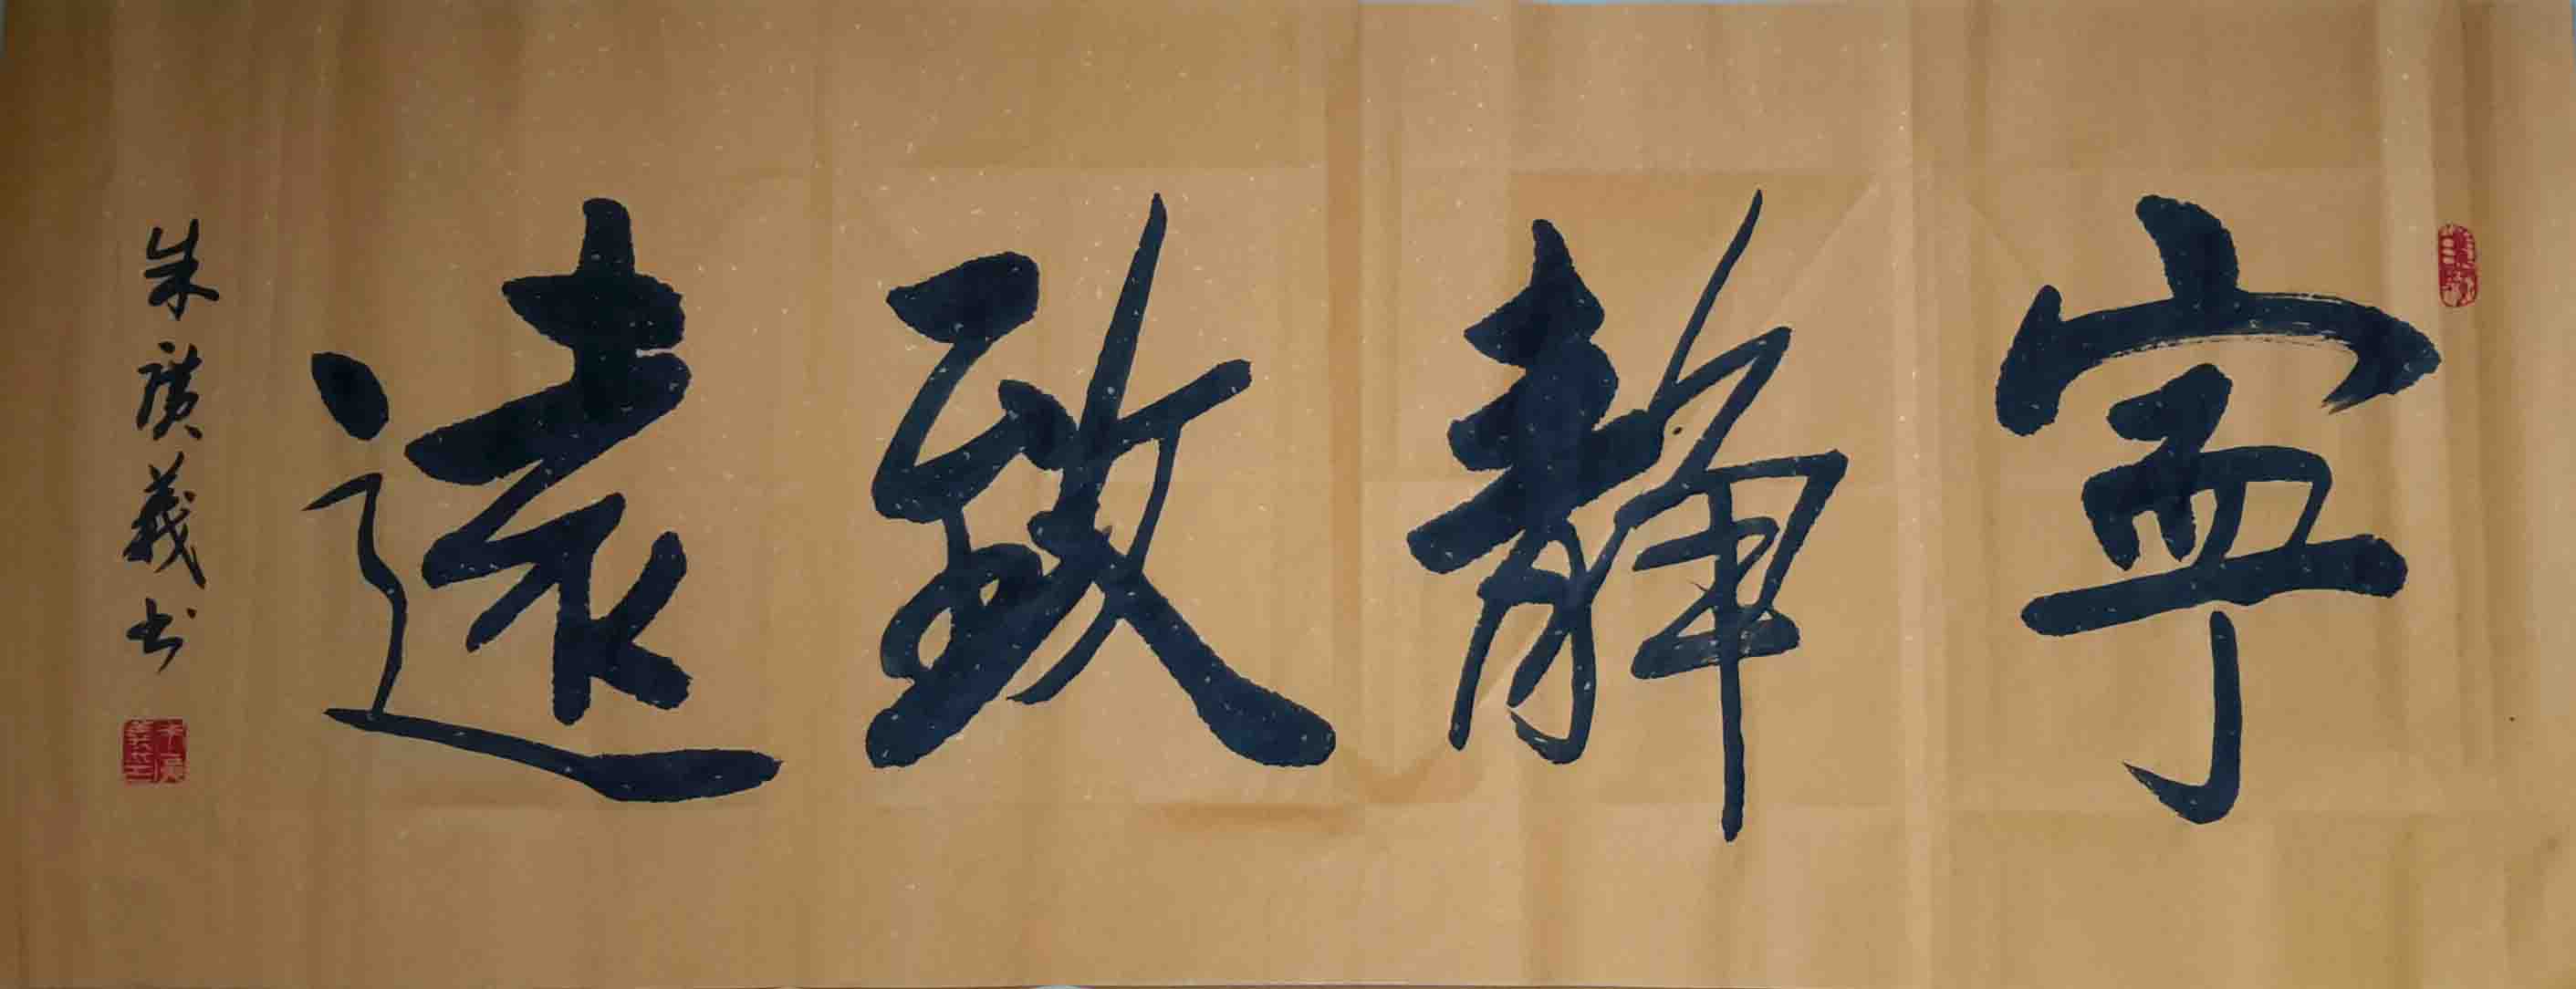 寧靜致遠
朱廣義书